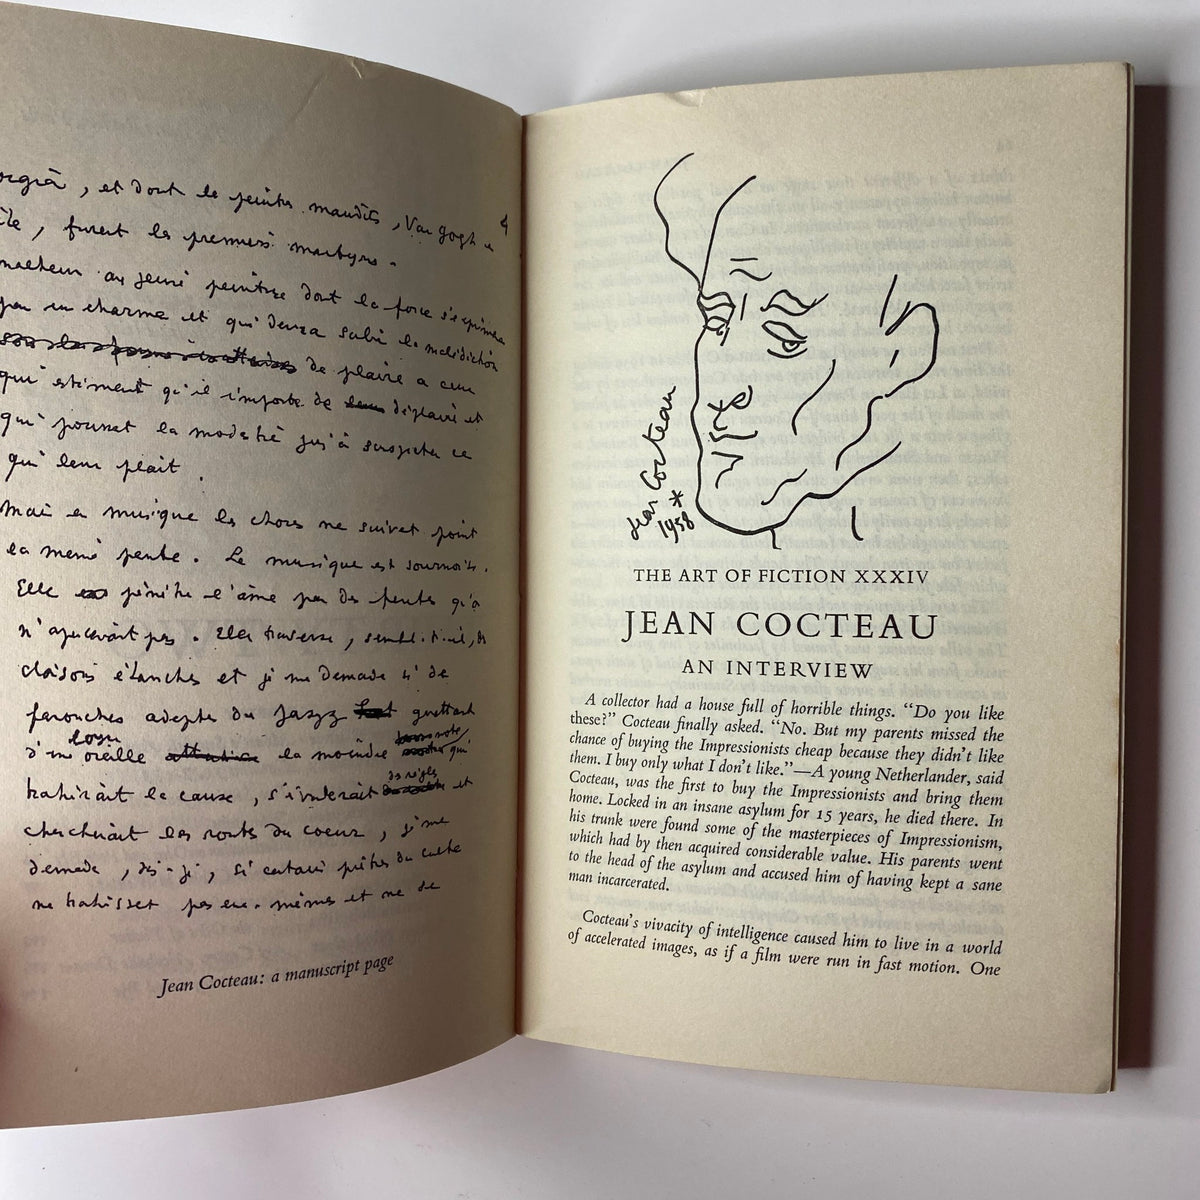 , et dont le peintre maudits, Van gogh 4
, furent les premiers martyrs.
au jeune peintre dont la force s'exprime
par un charme et qui devra subir la malédiction
de plaire a ceux
qui estiment qu'il importe de déplaire et
qui pousse la modestie jusqu'à suspecter ce
qui leur plait.
Mais en musique les choses ne suivent point
la même pente. La musique est sournoise.
Elle pénètre l'âme par des fentes qu'on
n'apercevait pas. Elle traverse, semble-t-il, des
cloisons étanches et je me demande si de
farouches adeptes du Jazz guettant
d'une oreille la moindre note qui
trahirait la cause, s'il violerait des règles et
chercherait les routes du coeur, je me
demande, dis-je, si certains prêtres du culte
ne trahissent pas eux-mêmes et ne se
Jean Cocteau: a manuscript page
Jean Cocteau
*
1958
THE ART OF FICTION XXXIV
JEAN COCTEAU
AN INTERVIEW
A collector had a house full of horrible things. “Do you like
these?” Cocteau finally asked. “No. But my parents missed the
chance of buying the Impressionists cheap because they didn’t like
them. I buy only what I don’t like.”—A young Netherlander, said
Cocteau, was the first to buy the Impressionists and bring them
home. Locked in an insane asylum for 15 years, he died there. In
his trunk were found some of the masterpieces of Impressionism,
which had by then acquired considerable value. His parents went
to the head of the asylum and accused him of having kept a sane
man incarcerated.
Cocteau’s vivacity of intelligence caused him to live in a world
of accelerated images, as if a film were run in fast motion. One